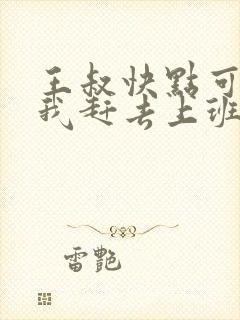 王叔快點可
我赶去上班
雷艷